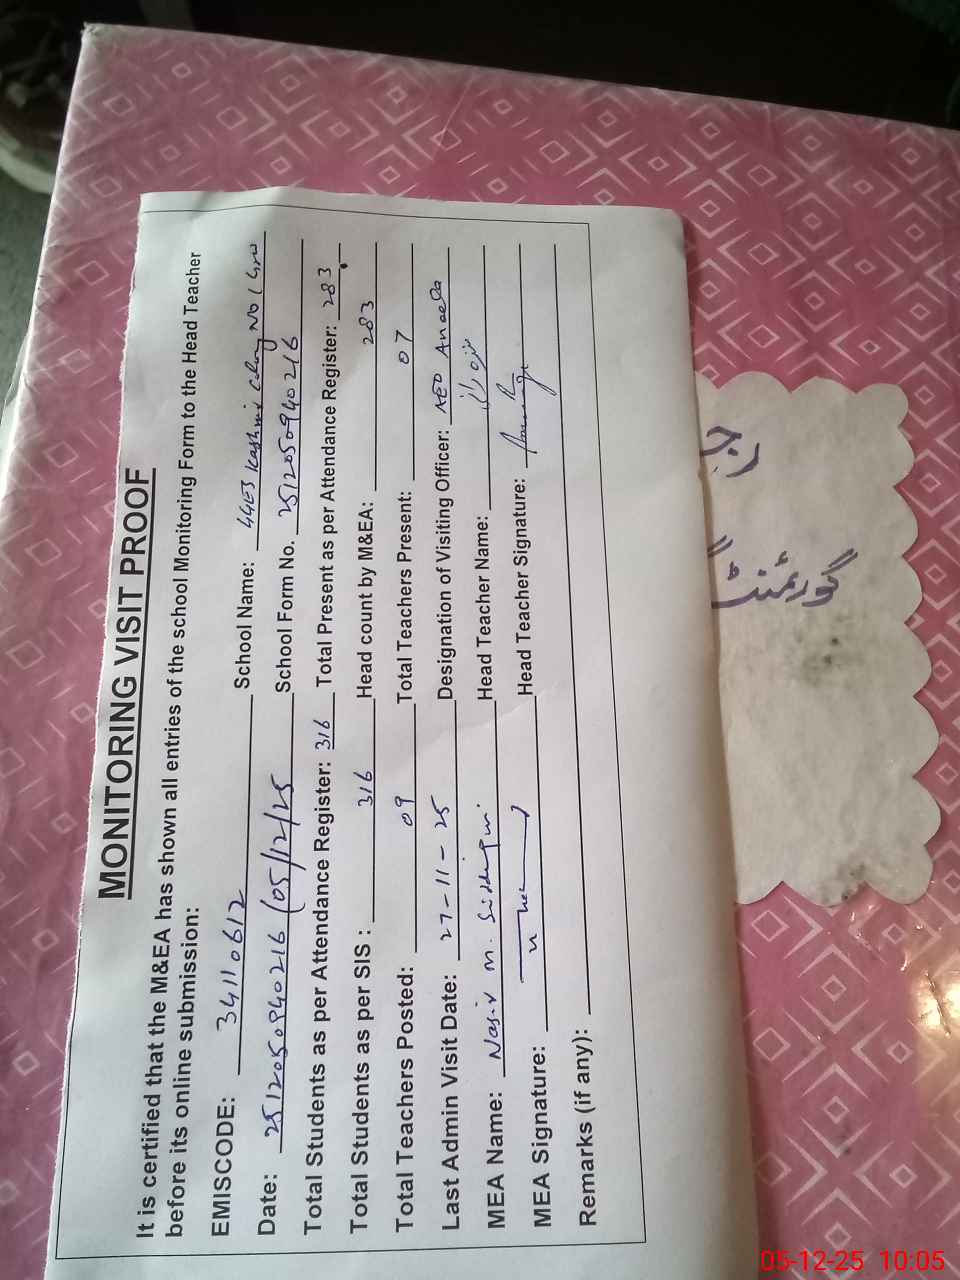 MONITORING VISIT PROOF
It is certified that the M&EA has shown all entries of the school Monitoring Form to the Head Teacher
before its online submission:
EMISCODE: 34110612 School Name: GGES Kashmir Colony No 1
Date: 2512050940216 (05/12/25 School Form No. 2512050940216
Total Students as per Attendance Register: 316 Total Present as per Attendance Register: 283
Total Students as per SIS : 316 Head count by M&EA: 283
Total Teachers Posted: 09 Total Teachers Present: 07
Last Admin Visit Date: 27-11-25 Designation of Visiting Officer: AEO Aneela
MEA Name: Nasir M. Siddiqui Head Teacher Name:
MEA Signature: Head Teacher Signature:
Remarks (if any):
رجـ
گورنمنٹ
05-12-25 10:05